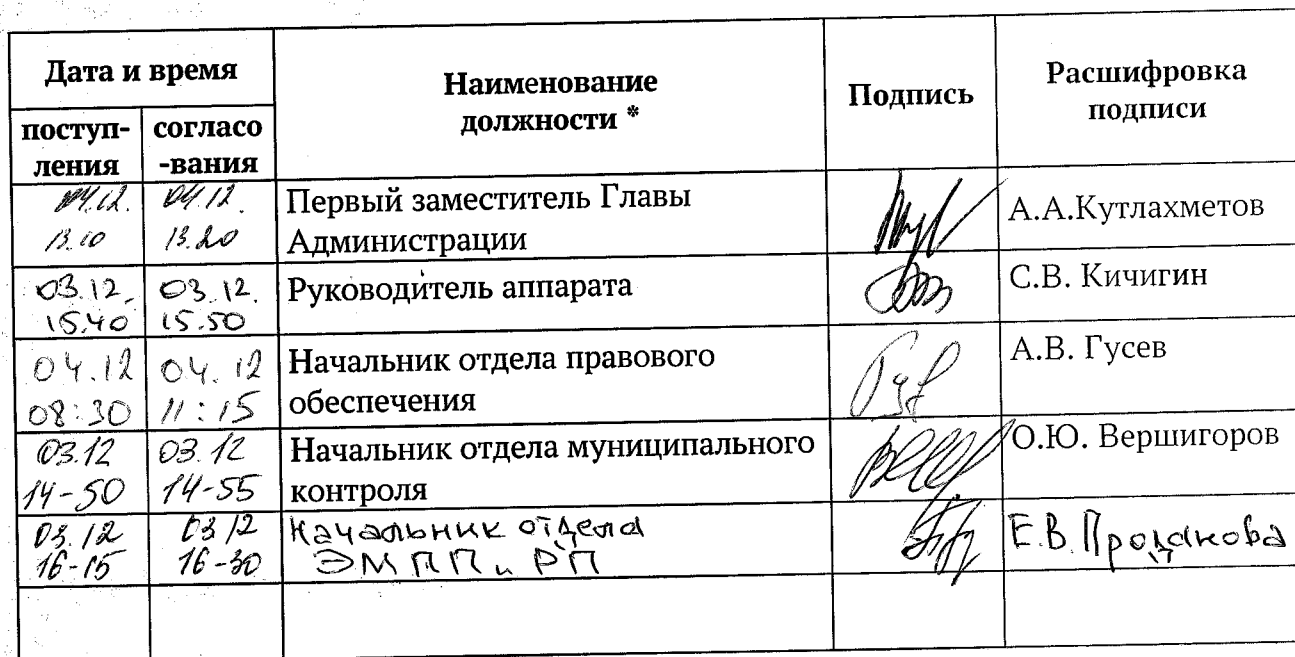 Дата и время
Наименование
должности *
Подпись
Расшифровка
подписи
поступ-
ления
согласо
-вания
04.12.
13.10
04.12.
13.20
Первый заместитель Главы
Администрации
А.А.Кутлахметов
03.12.
15.40
03.12.
15.50
Руководитель аппарата
С.В. Кичигин
04.12
08:30
04.12
11:15
Начальник отдела правового
обеспечения
А.В. Гусев
03.12
14-50
03.12
14-55
Начальник отдела муниципального
контроля
О.Ю. Вершигоров
03.12
16-15
03 12
16-30
Начальник отдела
ЭМПП и РП
Е.В. Проданова